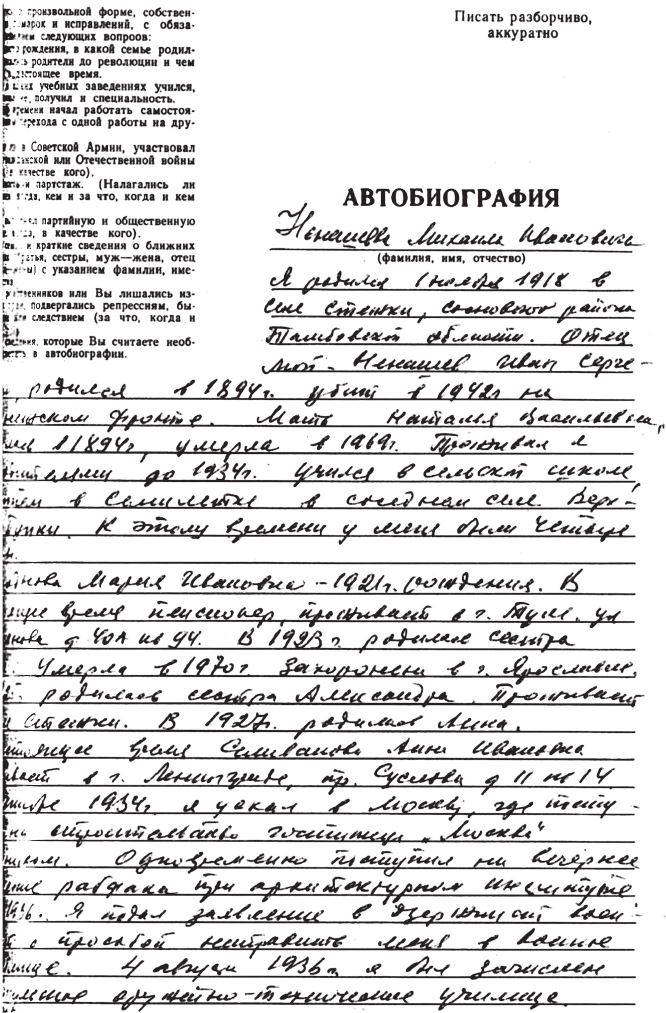 произвольной форме, собствен-
помарок и исправлений, с обяза-
следующих вопроов:
рождения, в какой семье родил-
родители до революции и чем
настоящее время.
учебных заведениях учился,
получил и специальность.
времени начал работать самостоя-
перехода с одной работы на дру-
в Советской Армии, участвовал
или Отечественной войны
качестве кого).
и партстаж. (Налагались ли
кем и за что, когда и кем
партийную и общественную
в качестве кого).
и краткие сведения о ближних
братья, сестры, муж—жена, отец
с указанием фамилии, име-
или Вы лишались из-
подвергались репрессиям, бы-
следствием (за что, когда и
которые Вы считаете необ-
в автобиографии.
Писать разборчиво,
аккуратно
АВТОБИОГРАФИЯ
Ненашева Михаила Ивановича
(фамилия, имя, отчество)
Я родился 1 ноября 1918 в
селе Стежки, Сосновского района
Тамбовской области. Отец
мой - Ненашев Иван Серге-
родился в 1894г. убит в 1942г на
фронте. Мать Наталья Васильевна,
1894г, умерла в 1969г. Проживал я
до 1934г. учился в сельской школе,
в семилетке в соседнем селе Верх-
К этому времени у меня были четыре
Мария Ивановна - 1921г. рождения. В
время пенсионер, проживает в г. Туле. ул
д 40А кв 94. В 1923г. родилась сестра
Умерла в 1970г. Захоронена в г. Ярославле.
родилась сестра Александра. Проживает
Стежки. В 1927г. родилась Анна.
время Селиванова Анна Ивановна
в г. Ленинграде, пр. Суслова д 11 кв 14
1934г. я уехал в Москву, где посту-
на строительство гостиницы „Москва"
Одновременно поступил на вечернее
рабфака при архитектурном институте
Я подал заявление в Дзержинский воен-
с просьбой направить меня в военное
4 августа 1936г. я был зачислен
оружейно-техническое училище.